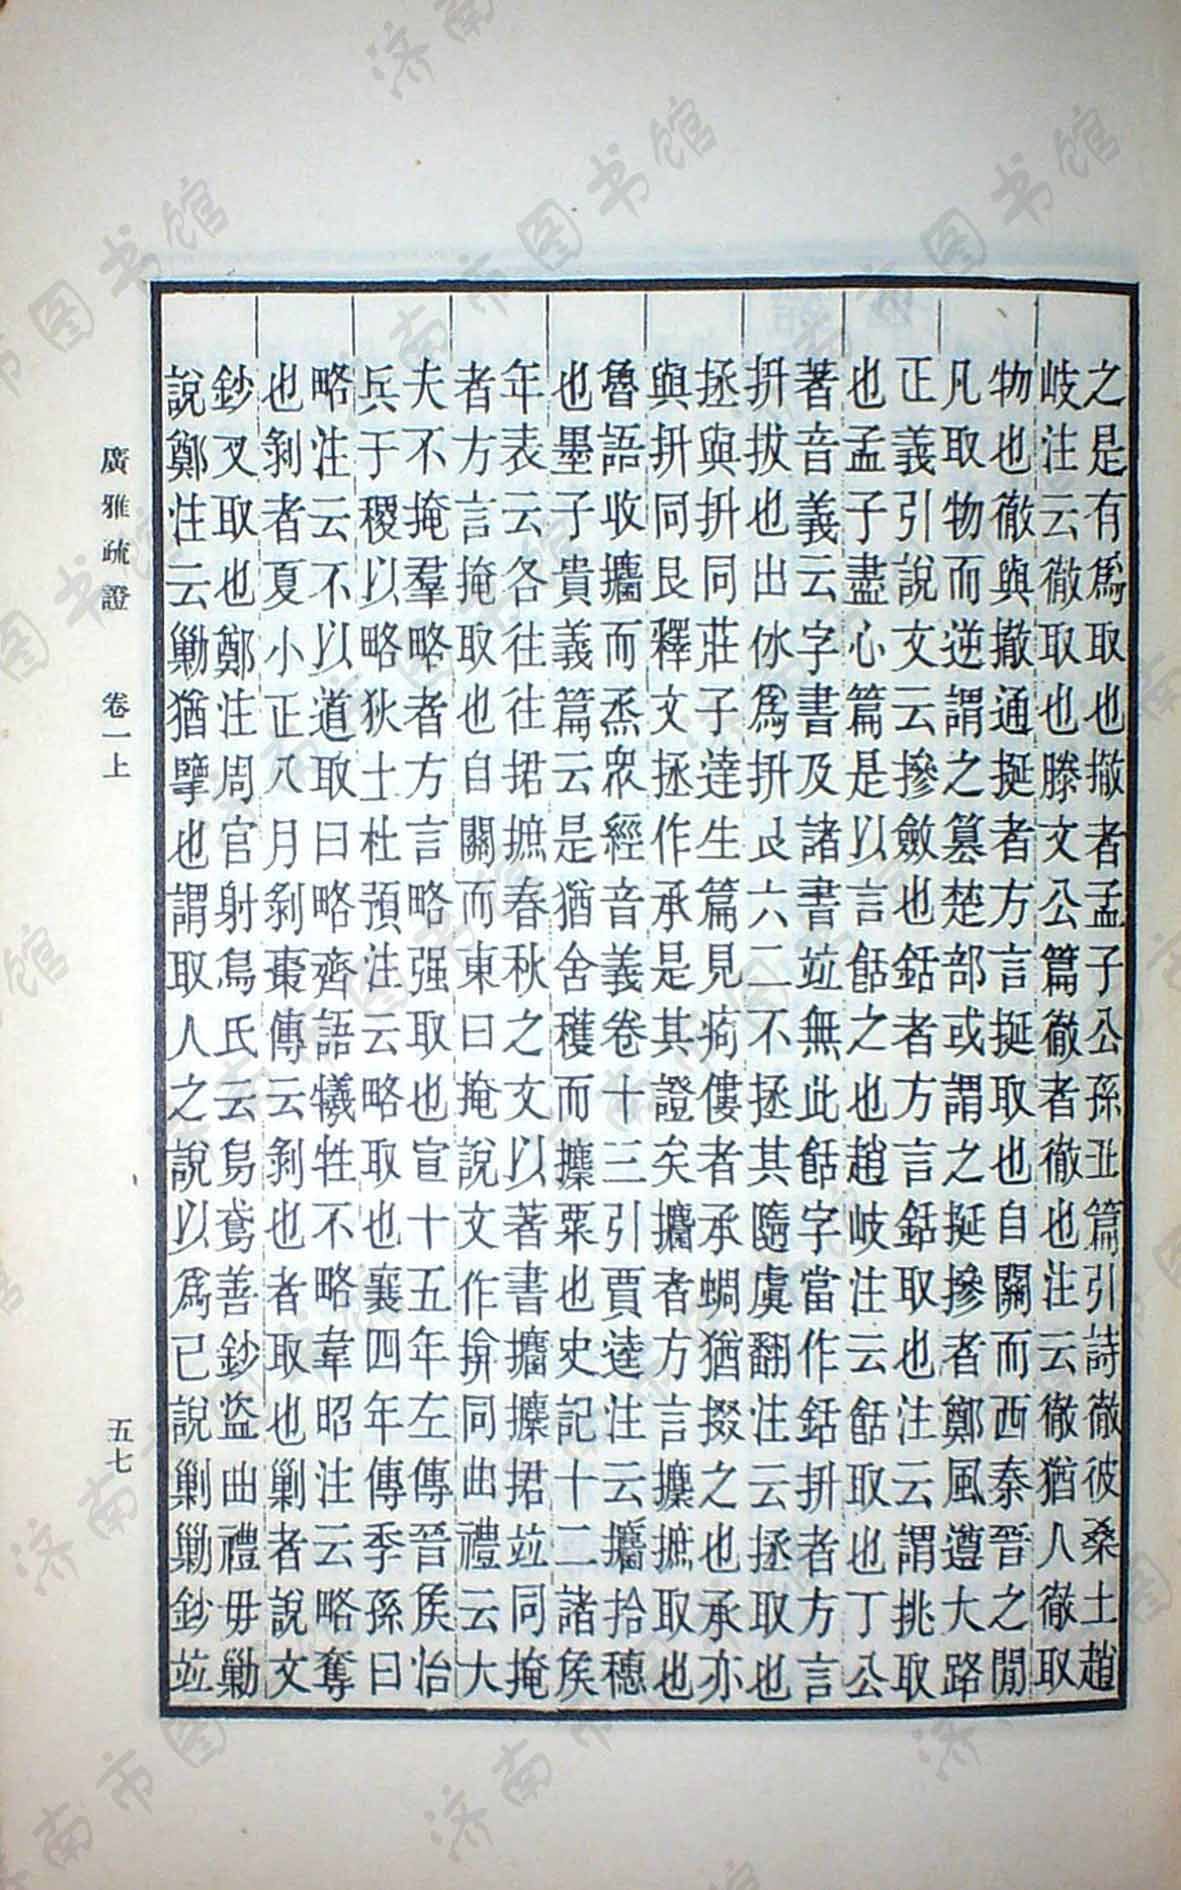 之是有爲取也撤者孟子公孫丑篇引詩徹彼桑土趙
岐注云徹取也滕文公篇徹者徹也注云徹猶人徹取
物也徹與撤通挻者方言挻取也自關而西秦晉之閒
凡取物而逆謂之篡楚部或謂之挻摻者鄭風遵大路
正義引說文云摻斂也銛者方言銛取也注云謂挑取
也孟子盡心篇是以言餂之也趙岐注云餂取也丁公
著音義云字書及諸書竝無此餂字當作銛抍者方言
抍拔也出㲻爲抍艮六二不拯其隨虞翻注云拯取也
拯與抍同莊子達生篇見痀僂者承蜩猶掇之也承亦
與抍同艮釋文拯作承是其證矣攟者方言攗摭取也
魯語收攟而烝眾經音義卷十三引賈逵注云攟拾穗
也墨子貴義篇云是猶舍穫而攗粟也史記十二諸矦
年表云各往往捃摭春秋之文以著書攟攗捃竝同掩
者方言掩取也自關而東曰掩說文作揜同曲禮云大
夫不掩羣略者方言略强取也宣十五年左傳晉矦治
兵于稷以略狄土杜預注云略取也襄四年傳季孫曰
略注云不以道取曰略齊語犧牲不略韋昭注云略奪
也剝者夏小正八月剝棗傳云剝也者取也剿者說文
鈔叉取也鄭注周官射鳥氏云烏鳶善鈔盜曲禮毋勦
說鄭注云勦猶擥也謂取人之說以爲己說剿勦鈔竝
廣雅疏證　卷一上
五七
济南市图书馆